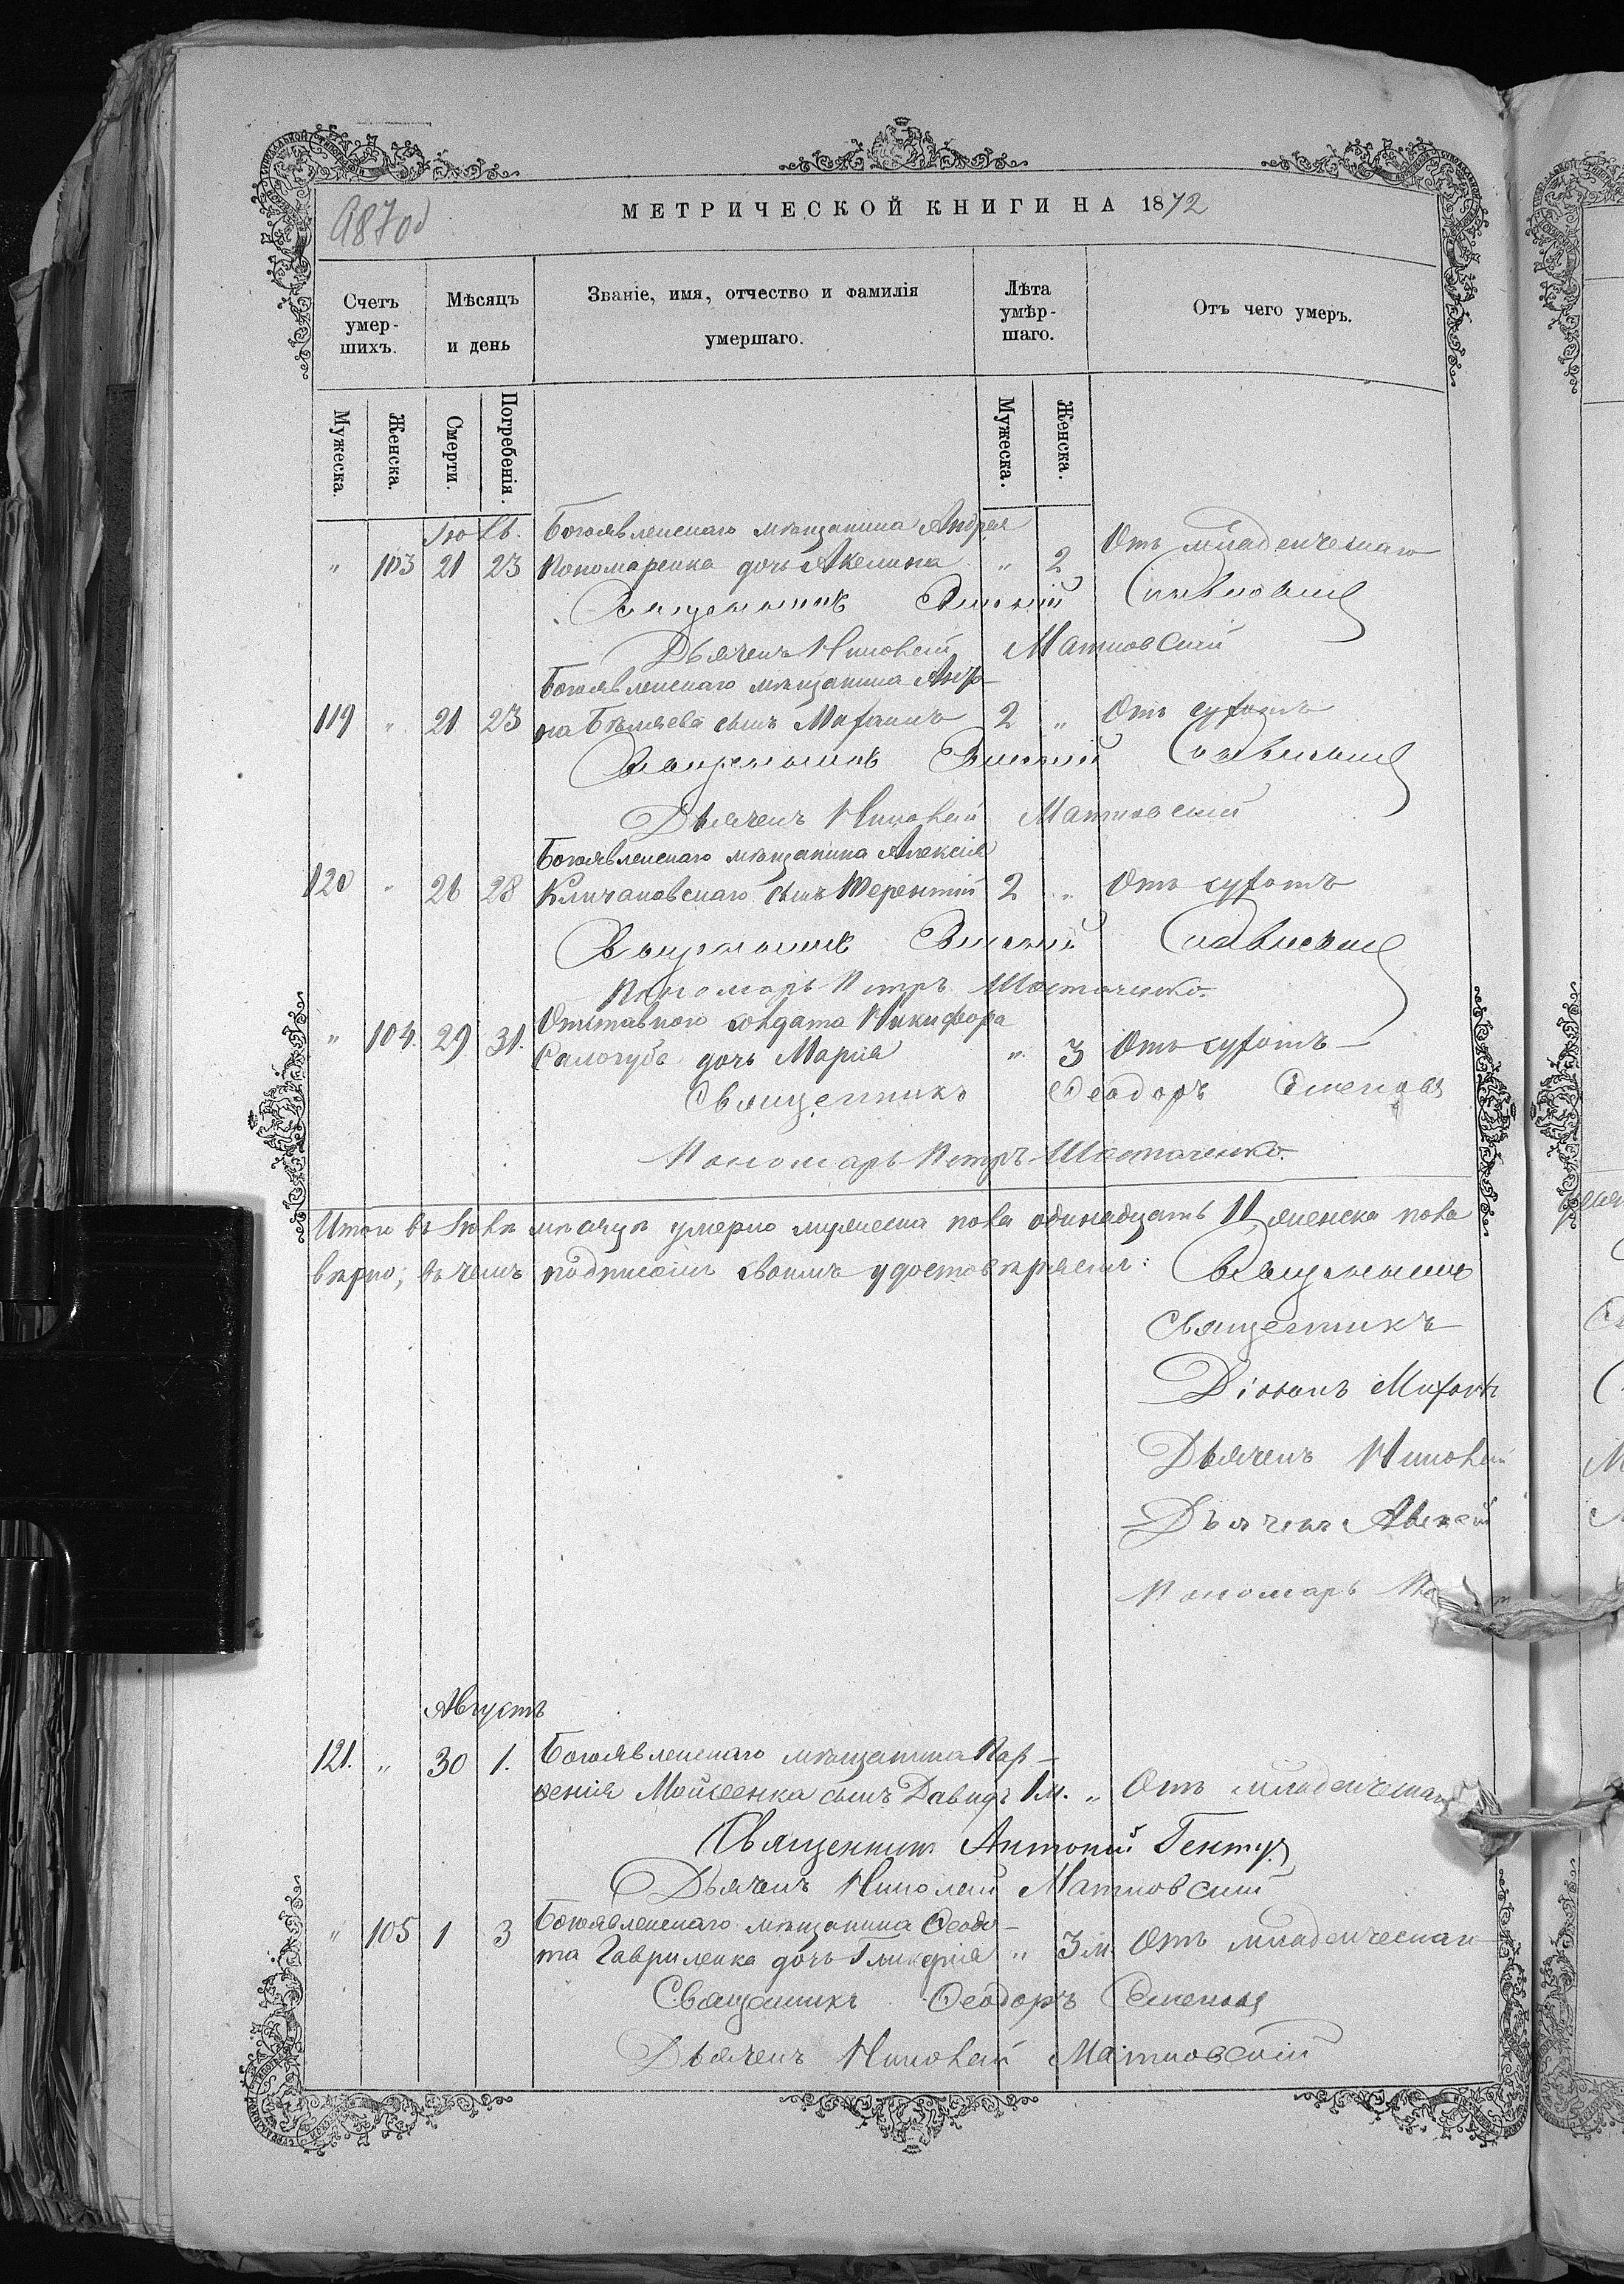 МЕТРИЧЕСКОЙ КНИГИ НА 1872
Счетъ умер-шихъ.
Мѣсяцъ и день
Званіе, имя, отчество и фамилія умершаго.
Лѣта умѣр-шаго.
Отъ чего умеръ.
Мужеска.
Женска.
Смерти.
Погребенія.
Мужеска.
Женска.
Богоявленскаго мѣщанина Андрея
" 103 21 23 Пономаренка дочь Акелина " 2 Отъ младенческаго
Священникъ
Дьячекъ Николай Матковскій
Богоявленскаго мѣщанина
119 " 21 23 на Бѣляева сынъ Михаилъ 2 " Отъ сухотъ
Священникъ
Дьячекъ Николай Матковскій
Богоявленскаго мѣщанина Алексія
120 " 26 28 Кличановскаго сынъ Терентій 2 " Отъ сухотъ
Священникъ
Пономарь Петръ Шостаченко.
Отставного солдата Никифора
" 104. 29 31. Салогуба дочь Марія " 3 Отъ сухотъ
Священникъ Ѳеодоръ
Пономарь Петръ Шостаченко.
Итого въ Іюлѣ мѣсяцѣ умерло мужеска пола одинадцать 11, женска пола
вѣрно; въ чемъ подписомъ своимъ удостовѣряемъ: Священникъ
Священникъ
Діаконъ
Дьячекъ Николай
Дьячекъ Алексій
Пономарь
Августъ
121. " 30 1. Богоявленскаго мѣщанина Пар-
ѳенія Мойсеенка сынъ Давидъ 1 м. " Отъ младенческаго
Священникъ Антоній
Дьячекъ Николай Матковскій
Богоявленскаго мѣщанина Ѳеодо-
" 105 1 3 та Гавриленка дочь Гликерія " 3 м. Отъ младенческаго
Священникъ Ѳеодоръ
Дьячекъ Николай Матковскій